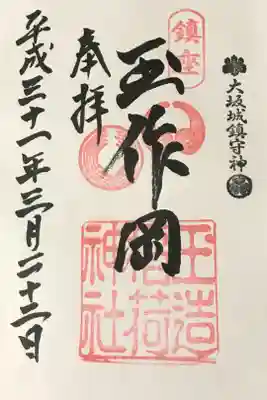 大坂城鎮守神
鎮座
玉作岡
奉拝
平成三十一年三月二十二日
玉造
稲荷
神社